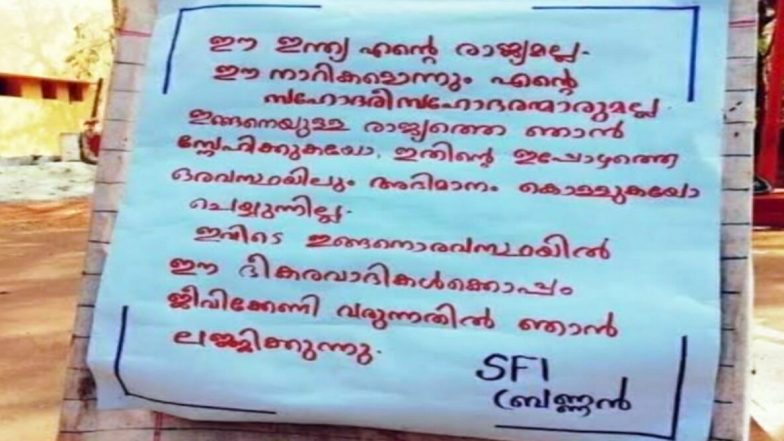 ഈ ഇന്ത്യ എന്റെ രാജ്യമല്ല.
ഈ നാറികളൊന്നും എന്റെ
സഹോദരീസഹോദരന്മാരുമല്ല
ഇങ്ങനെയുള്ള രാജ്യത്തെ ഞാൻ
സ്നേഹിക്കുകയോ, ഇതിന്റെ ഇപ്പോഴത്തെ
ഒരവസ്ഥയിലും അഭിമാനം കൊള്ളുകയോ
ചെയ്യുന്നില്ല.
ഇവിടെ ഇങ്ങനൊരവസ്ഥയിൽ
ഈ ഭീകരവാദികൾക്കൊപ്പം
ജീവിക്കേണി വരുന്നതിൽ ഞാൻ
ലജ്ജിക്കുന്നു.
SFI
ബ്രണ്ണൻ